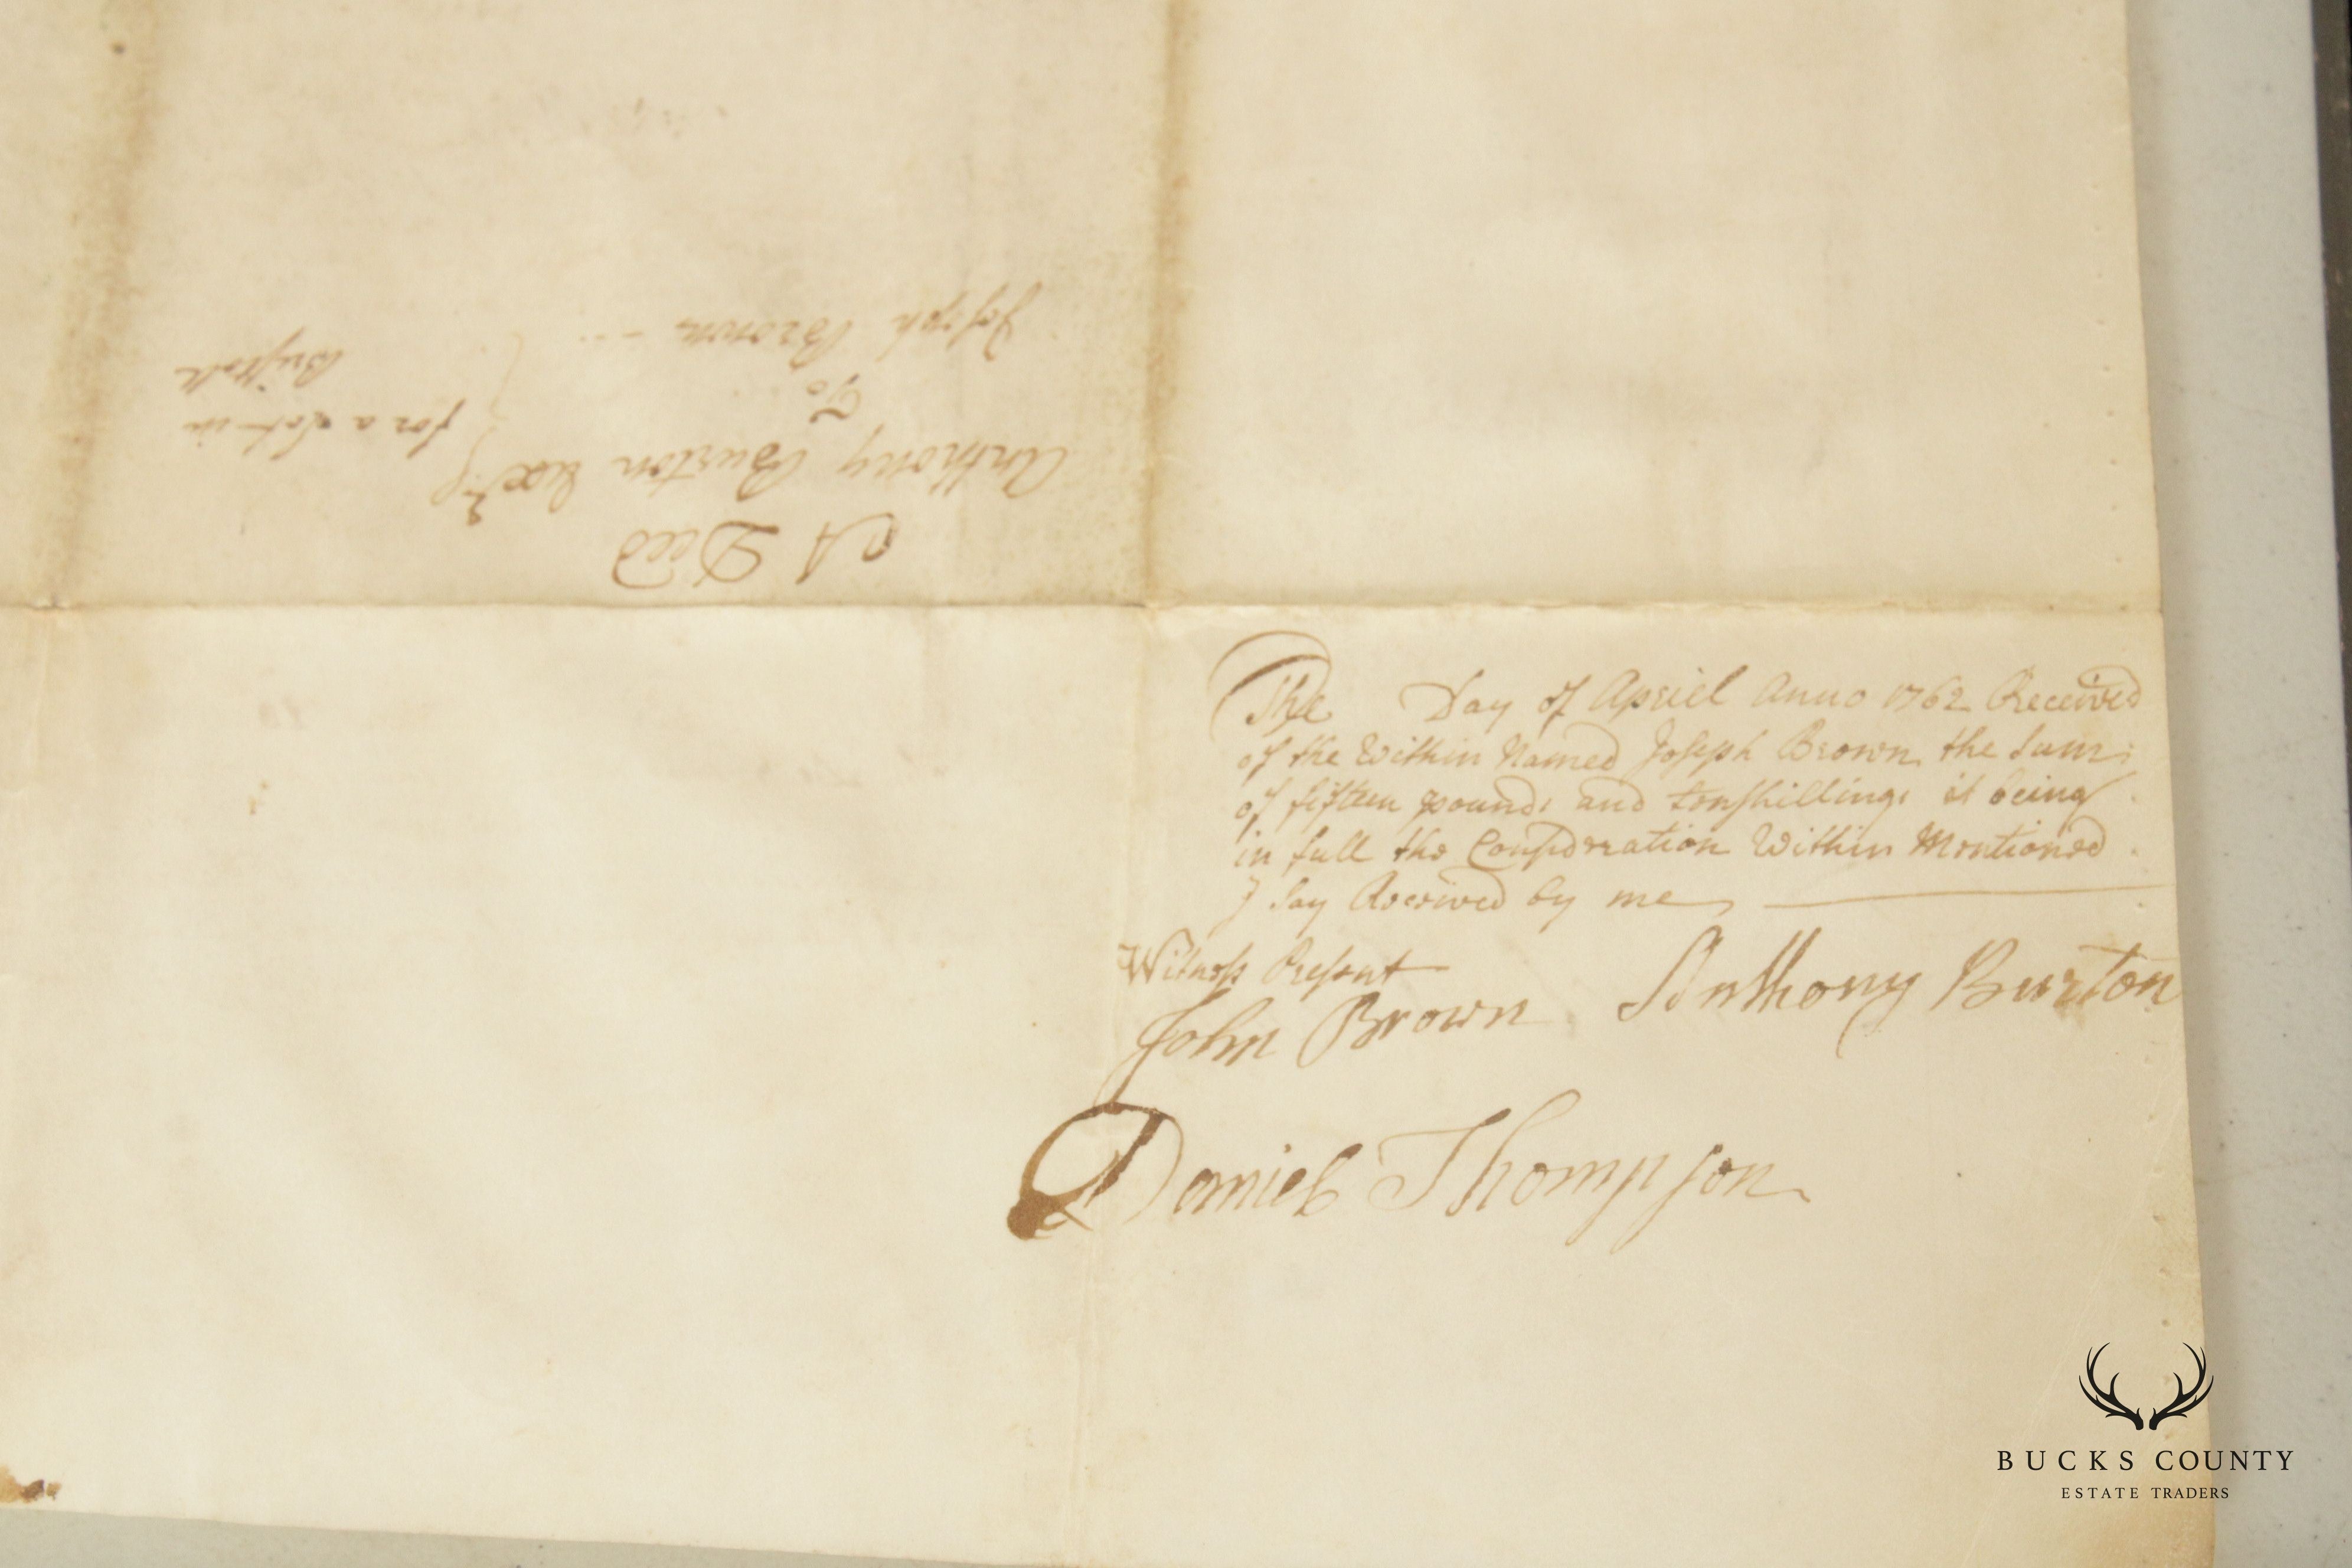 A Deed
Anthony Burton Exr
To
Joseph Brown
for a Lot in
Bristoll
The Day of Apriel Anno 1762 Received
of the Within Named Joseph Brown the Sum
of fifteen pounds and ten shillings it being
in full the Consideration Within Mentioned
I Say Received by me
Witness Present
John Brown Anthony Burton
Daniel Thompson
BUCKS COUNTY
ESTATE TRADERS